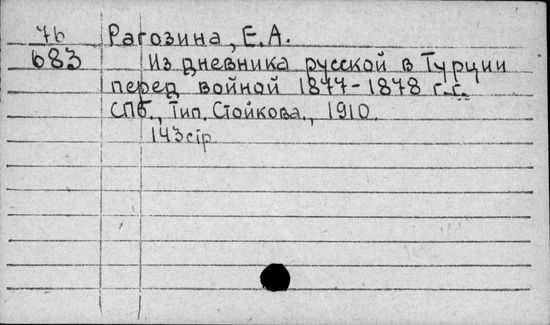 76 Рагозина, Е.А.
683 Из дневника русской в Турции
перед войной 1877-1878 г.г.
СПб., Тип. Стойкова., 1910.
143 стр.